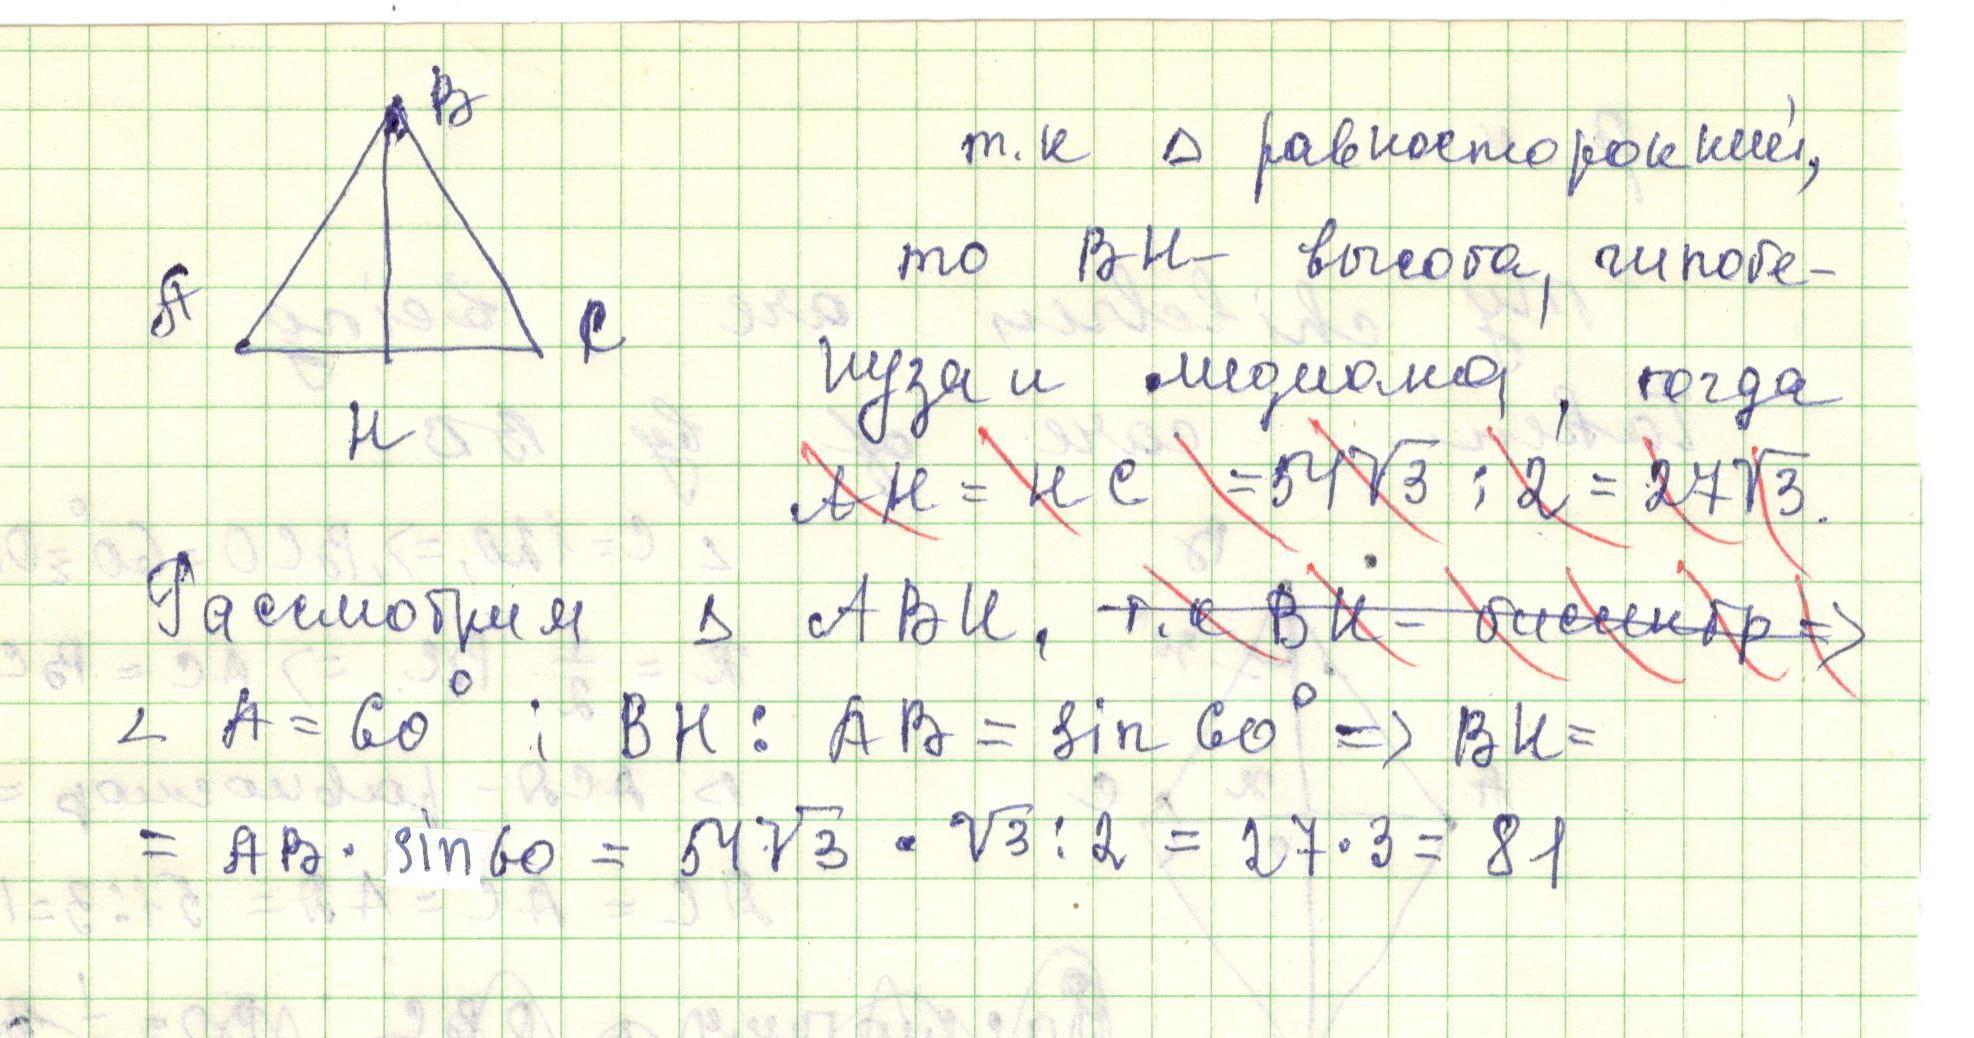 B
A
C
H
т.к △ равносторонний,
то BH- высота, гипоте-
нуза и медиана, тогда
AH = HC = 54√3 : 2 = 27√3.
Рассмотрим △ ABH, т.к BH - биссектр =>
∠ A = 60° ; BH : AB = sin 60° => BH =
= AB · sin 60 = 54√3 · √3 : 2 = 27·3 = 81